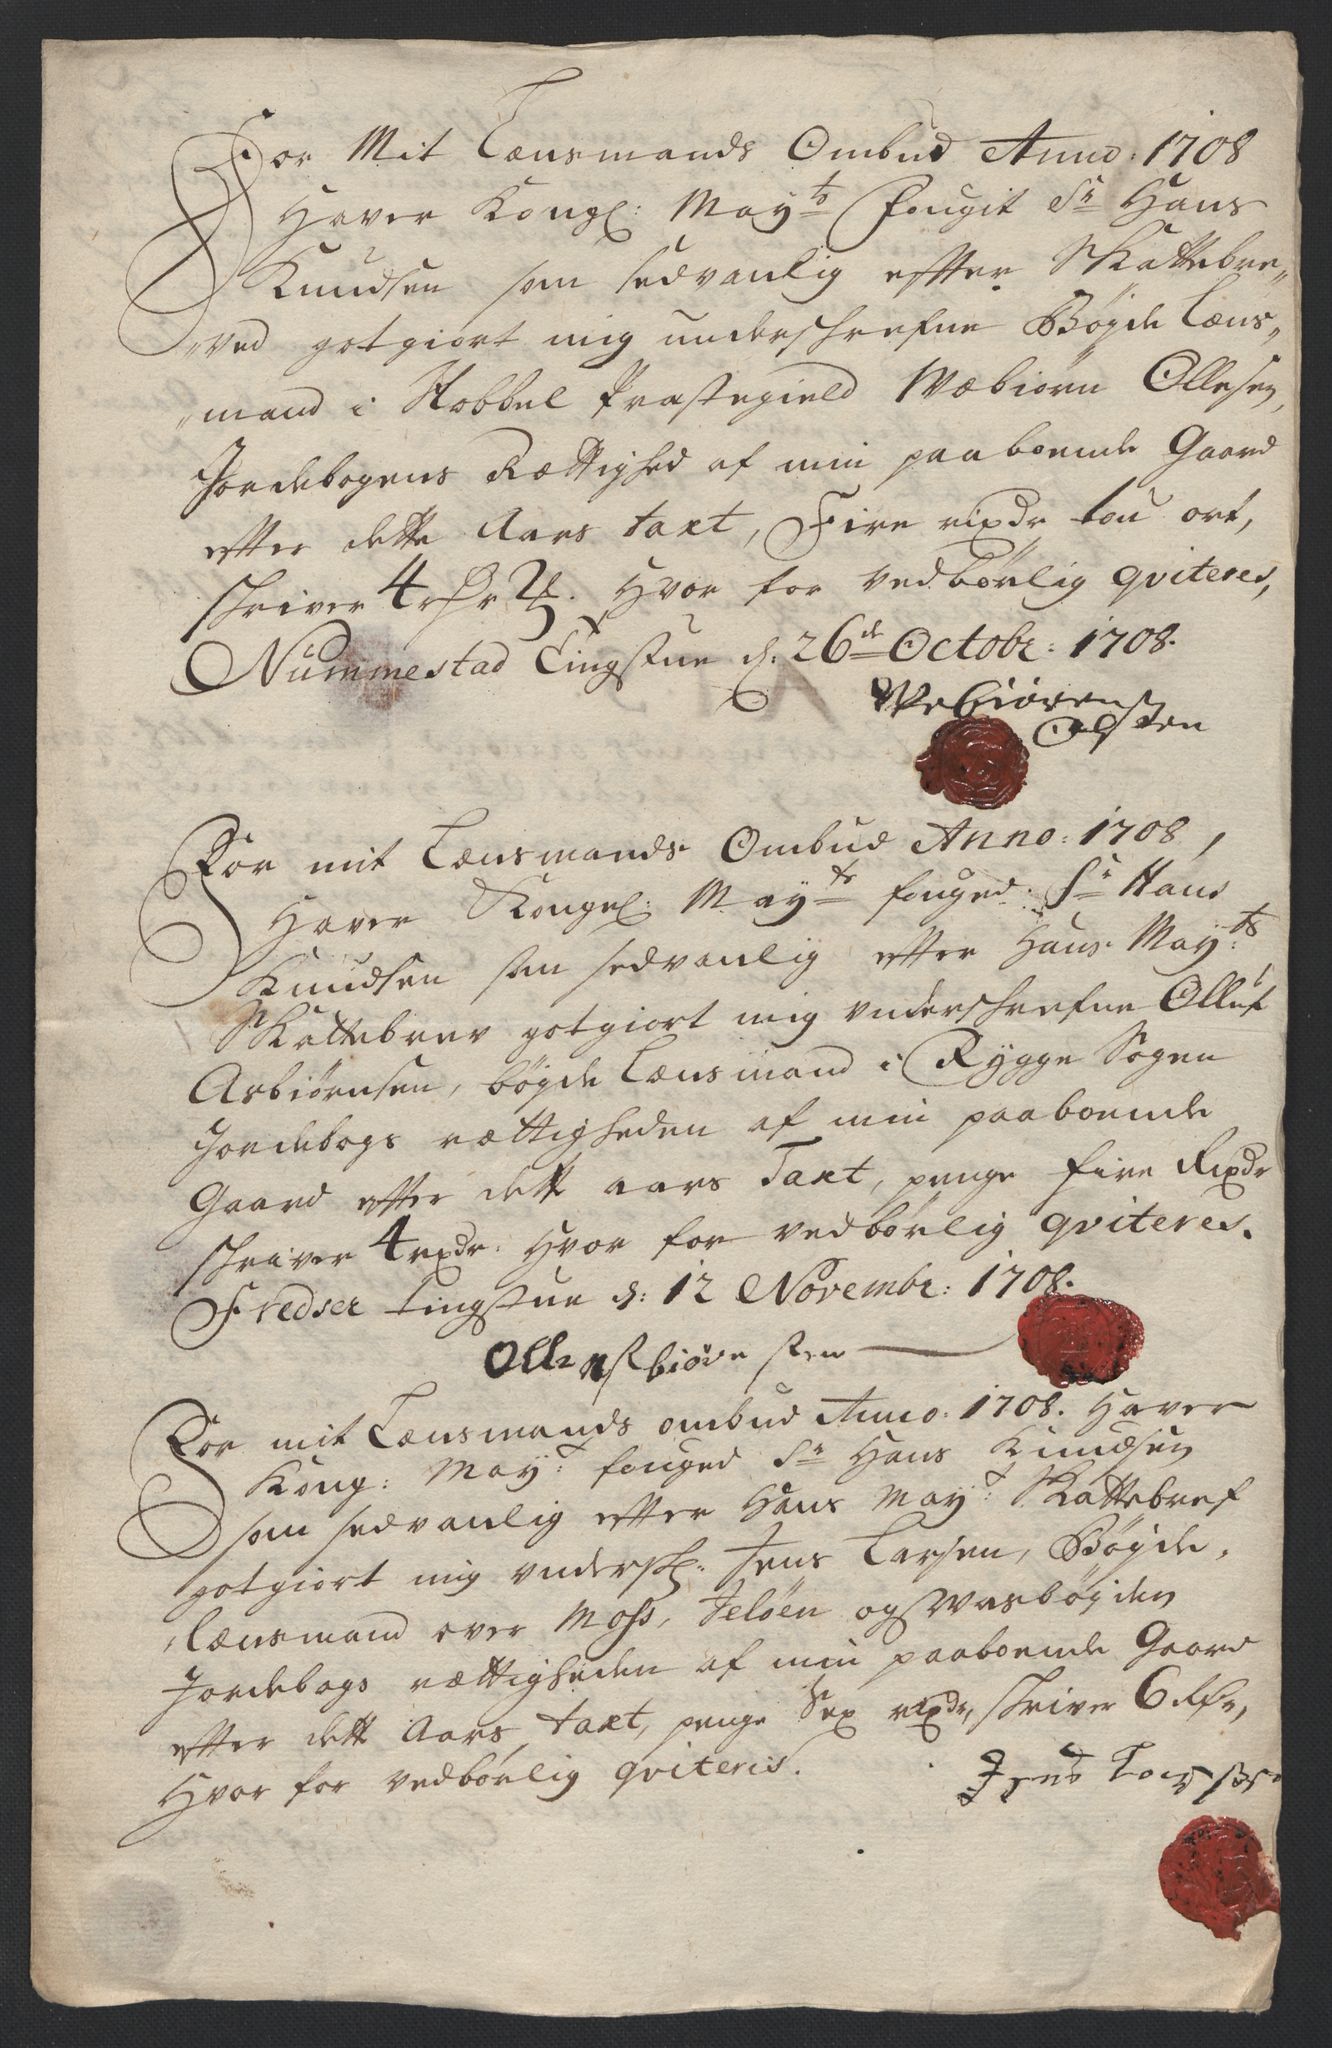 For Mit Lænsmands Ombud Anno: 1708
Haver Kongl: Mayts Fougit Sr Hans
Knudsen som sedvanlig effter Skattebre„
„ved gotgiort mig underschrefne Bøgde Læns„
„mand i Hobbel Præstegield Webiørn Ollesen,
Jordebogens Rættighed af min paaboende Gaard
efter dette Aars taxt, Fire rixdr tou ort,
schriver 4 rdr 2 Hvor for vedbørlig qviteres,
Nummestad Tingstue d: 26de Octobr: 1708.
Webiørensen
Olsten
For mit Lænsmands Ombud Anno: 1708,
Haver Kongel: Mayts fouged Sr Hans
Knudsen som sedvanlig efter Hans Mayts:
Skattebrev gotgiort mig underschrefne Olluf
Asbiørnsen, bøgde Lænsmand i Rygge Sogen
Jordebogs rættigheden af min paaboende
Gaard efter dette aars Taxt, penge fire Rixdr
schriver 4 rixdr: Hvor for vedbørlig qviteres.
Fredser tingstue d: 12 Novembr: 1708.
Olle Asbiørnsen
For mit Lænsmands ombud Anno: 1708. Haver
Kong: May: fouged Sr Hans Knudsen
som sedvanlig efter Hans May: Skattebref
gotgiort mig undersch: Jens Larsen, Bøgde„
„lænsmand over Moss, Jeløen og Warbøgden
Jordebogs rættigheden af min paaboende Gaard
efter dette Aars taxt, penge Sex rixdr, schriver 6 Rdr,
Hvor for vedbørlig qviteris.
Jens Larssen